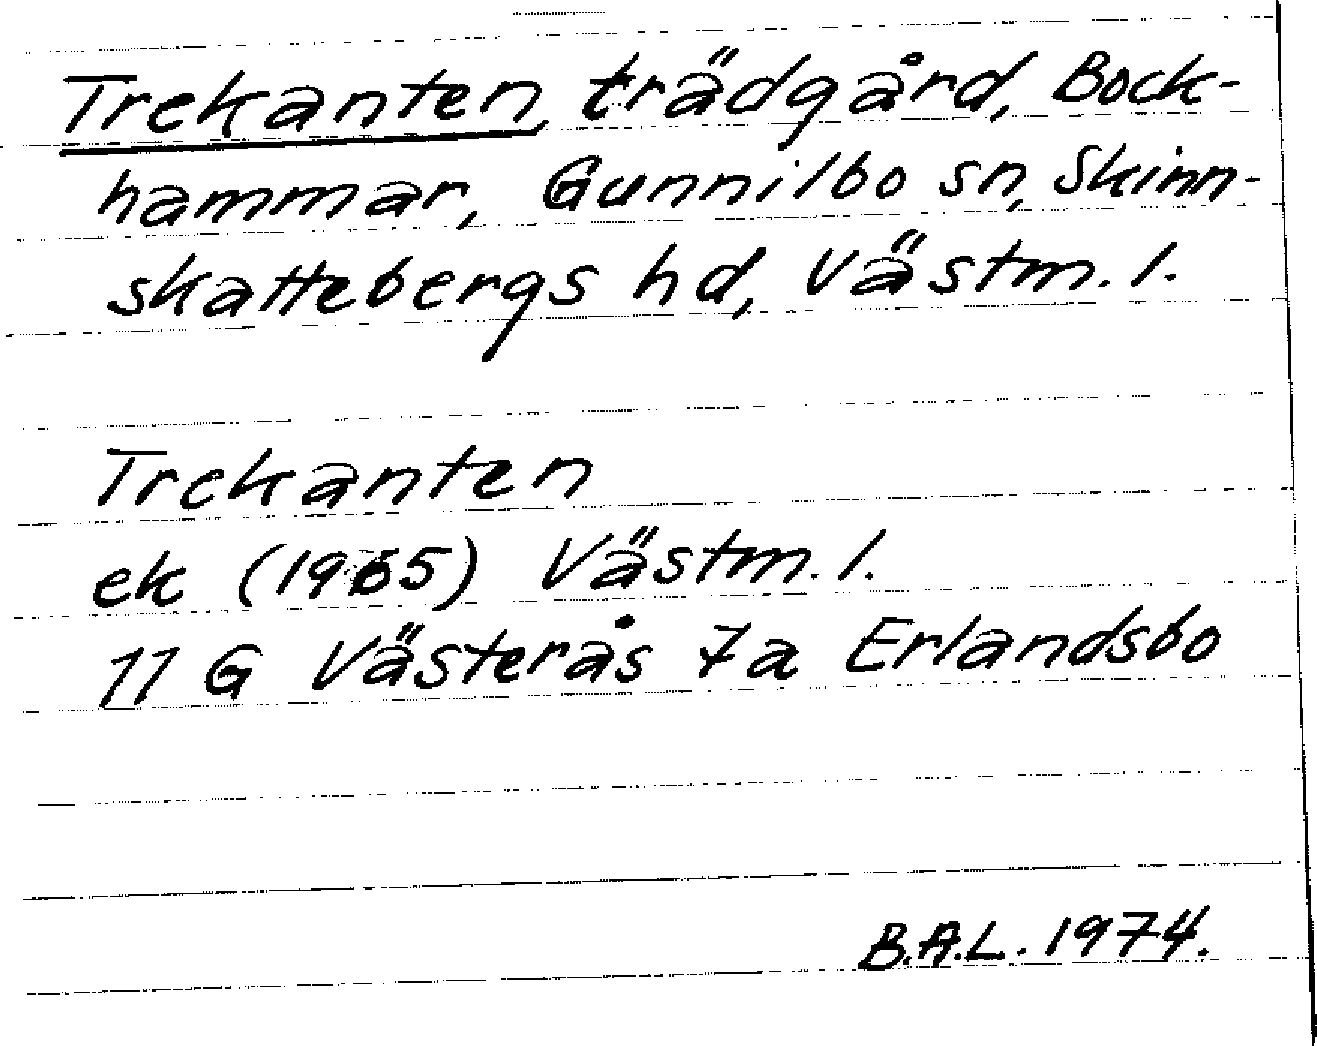 Trekanten, trädgård, Bock-
hammar, Gunnilbo sn, Skinn-
skattebergs hd, Västm. l.
Trekanten
ek (1965) Västm. l.
11 G Västerås 7a Erlandsbo
B.A.L. 1974.